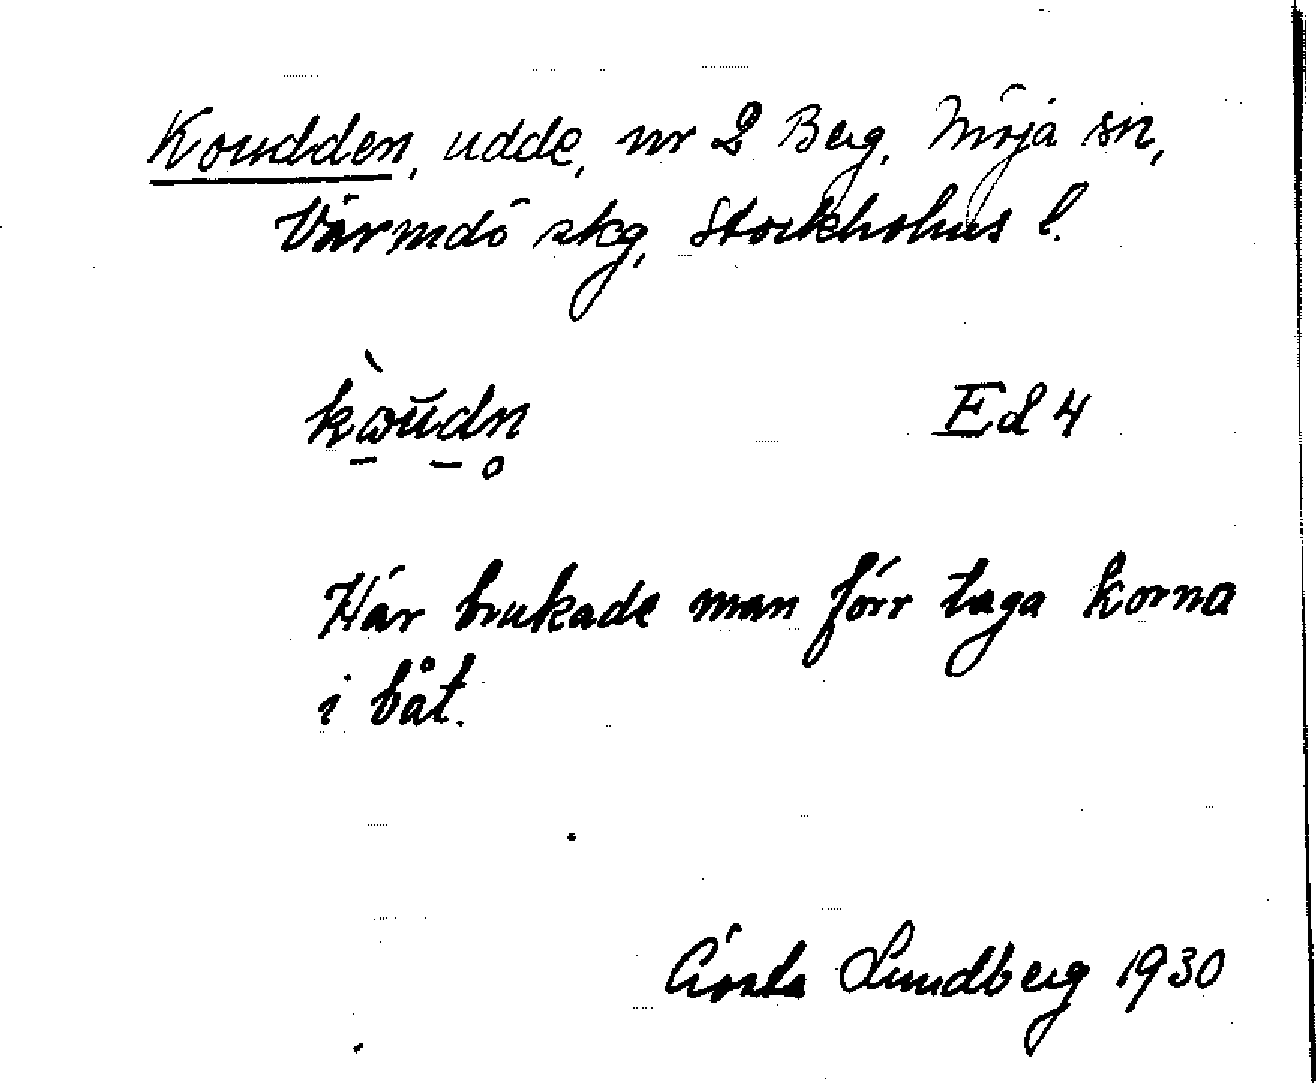 Koudden, udde, nr 2 Berg, Möja sn,
Värmdö skg, Stockholms l.
Ed 4
Här brukade man förr taga korna
i båt.
Gösta Lundberg 1930